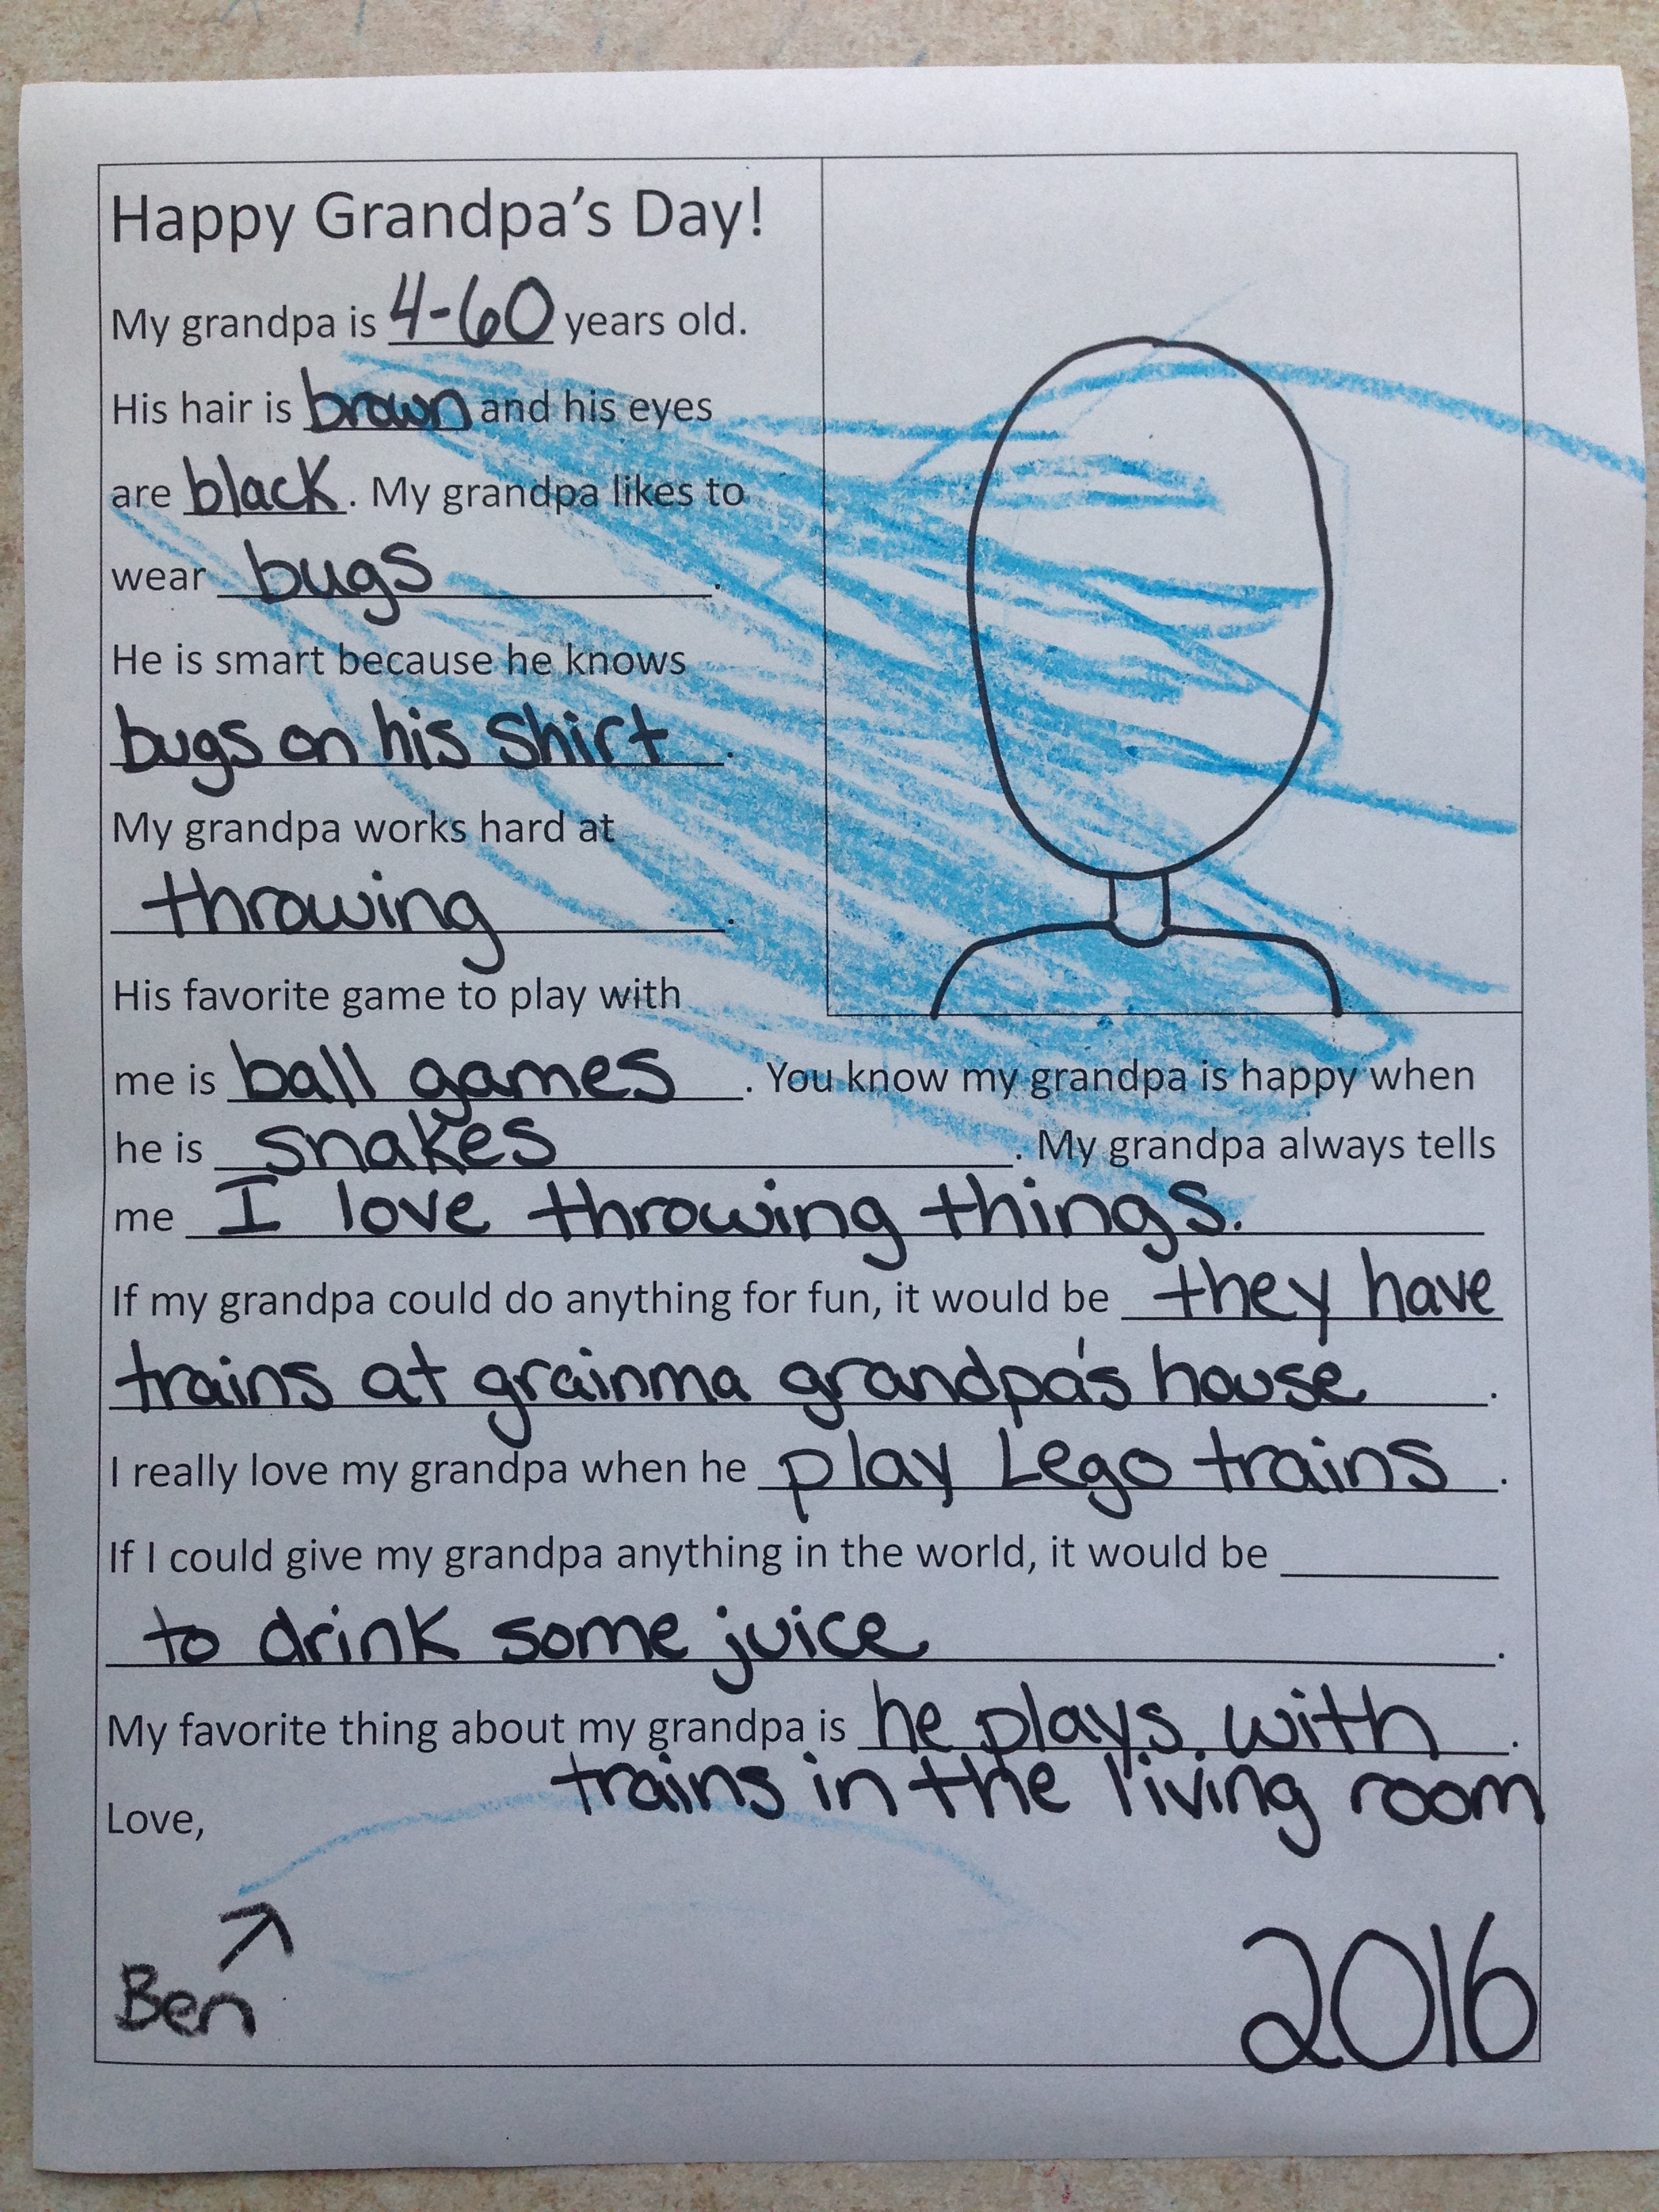 Happy Grandpa's Day!
My grandpa is 4-60 years old.
His hair is brown and his eyes
are black. My grandpa likes to
wear bugs.
He is smart because he knows
bugs on his shirt.
My grandpa works hard at
throwing.
His favorite game to play with
me is ball games. You know my grandpa is happy when
he is snakes. My grandpa always tells
me I love throwing things.
If my grandpa could do anything for fun, it would be they have
trains at grainma grandpa's house.
I really love my grandpa when he play Lego trains.
If I could give my grandpa anything in the world, it would be
to drink some juice.
My favorite thing about my grandpa is he plays with.
trains in the living room
Love,
Ben
2016